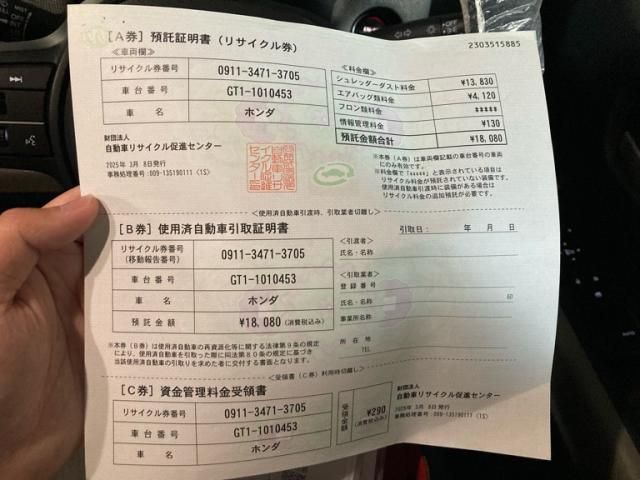 [A券] 預託証明書（リサイクル券）
2303515885
≪車両欄≫
リサイクル券番号 0911-3471-3705
車台番号 GT1-1010453
車名 ホンダ
≪料金欄≫
シュレッダーダスト料金 ¥13,830
エアバッグ類料金 ¥4,120
フロン類料金 *****
情報管理料金 ¥130
預託金額合計 ¥18,080
財団法人
自動車リサイクル促進センター
2025年 3月 8日発行
事務処理番号:009-135190111 (1S)
※本券（A券）は車両欄記載の車台番号の車両
にのみ有効です。
※料金欄で「*****」と表示されている項目は
リサイクル料金が預託されていない装備です。
使用済自動車引渡時に装備がある場合は
リサイクル料金の追加預託が必要です。
＜使用済自動車引渡時、引取業者切離し＞
[B券] 使用済自動車引取証明書
引取日： 年 月 日
リサイクル券番号
(移動報告番号) 0911-3471-3705
車台番号 GT1-1010453
車名 ホンダ
預託金額 ¥18,080 (消費税込み)
＜引渡者＞
氏名・名称
＜引取業者＞
登録番号
氏名・名称
事業所名
所在地
TEL
※本券（B券）は使用済自動車の再資源化等に関する法律第9条の規定
により、使用済自動車を引取った際に同法第80条の規定に基づき
当該使用済自動車の引取りを求めた者に交付する書面となります。
＜受領書（C券）利用時切離し＞
[C券] 資金管理料金受領書
リサイクル券番号 0911-3471-3705
車台番号 GT1-1010453
車名 ホンダ
受領金額 ¥290 (消費税込み)
財団法人
自動車リサイクル促進センター
2025年 3月 8日発行
事務処理番号:009-135190111 (1S)